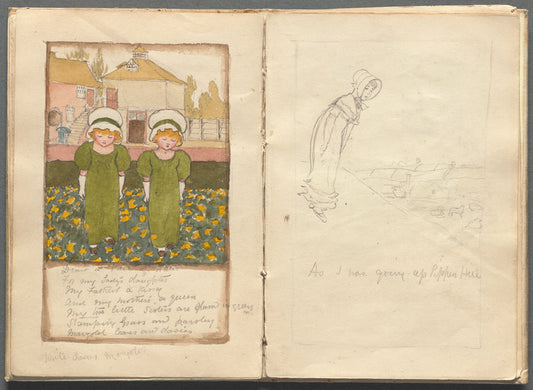 Draw
For my Lady's daughter
My Father's a King
And my mother's a queen
My two little Sisters are in green
Stamping Grass and parsley
Marigold leaves and daisies
As I was going up Pippen Hill